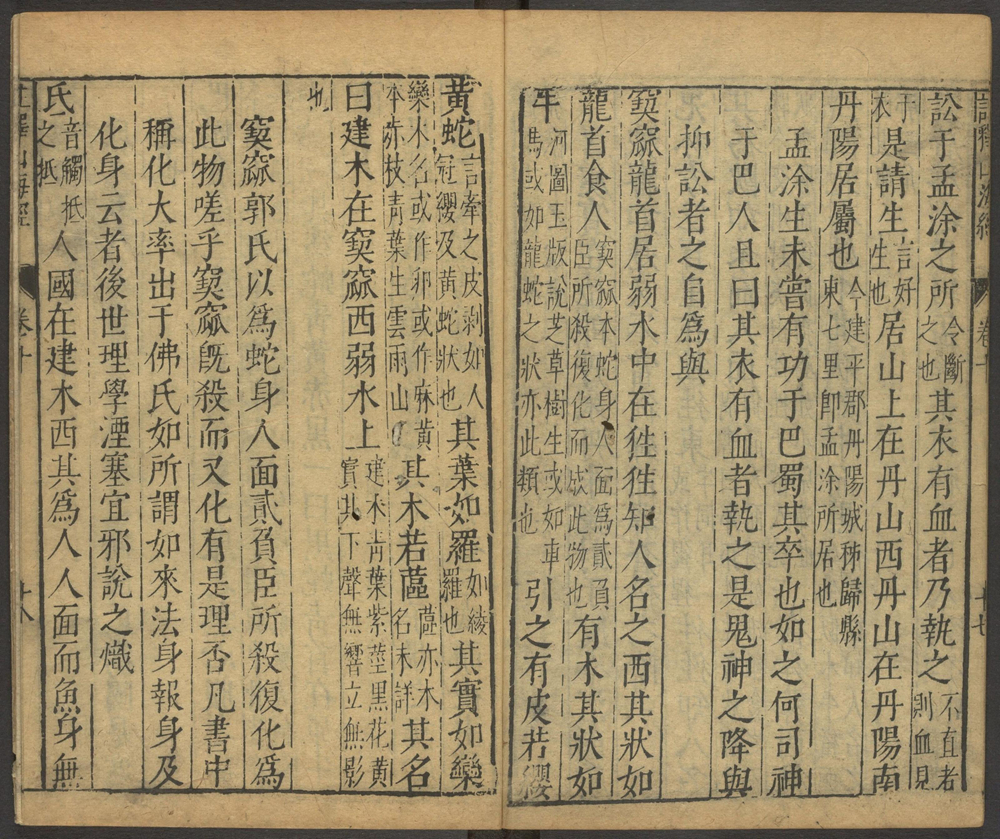 訟于孟涂之所令斷之也其衣有血者乃執之不直者則血見
于衣是請生言好生也居山上在丹山西丹山在丹陽南
丹陽居屬也今建平郡丹陽城秭歸縣東七里卽孟涂所居也
孟涂生未嘗有功于巴蜀其卒也如之何司神
于巴人且曰其衣有血者執之是鬼神之降與
抑訟者之自爲與
窫窳龍首居弱水中在狌狌知人名之西其狀如
龍首食人窫窳本蛇身人面爲貳負臣所殺復化而成此物也有木其狀如
牛河圖玉版說芝草樹生或如車馬或如龍蛇之狀亦此類也引之有皮若纓
黃蛇言牽之皮剥如人冠纓及黃蛇狀也其葉如羅如綾羅也其實如欒
欒木名或作卵或作麻黃本亦枝青葉生雲雨山其木若蓲蓲亦木名未詳其名
曰建木在窫窳西弱水上建木青葉紫莖黑花黃實其下聲無響立無影
也
窫窳郭氏以爲蛇身人面貳負臣所殺復化爲
此物嗟乎窫窳旣殺而又化有是理否凡書中
稱化大率出于佛氏如所謂如來法身報身及
化身云者後世理學湮塞宜邪說之熾
氐音觸抵之抵人國在建木西其爲人人面而魚身無
卷十
十八